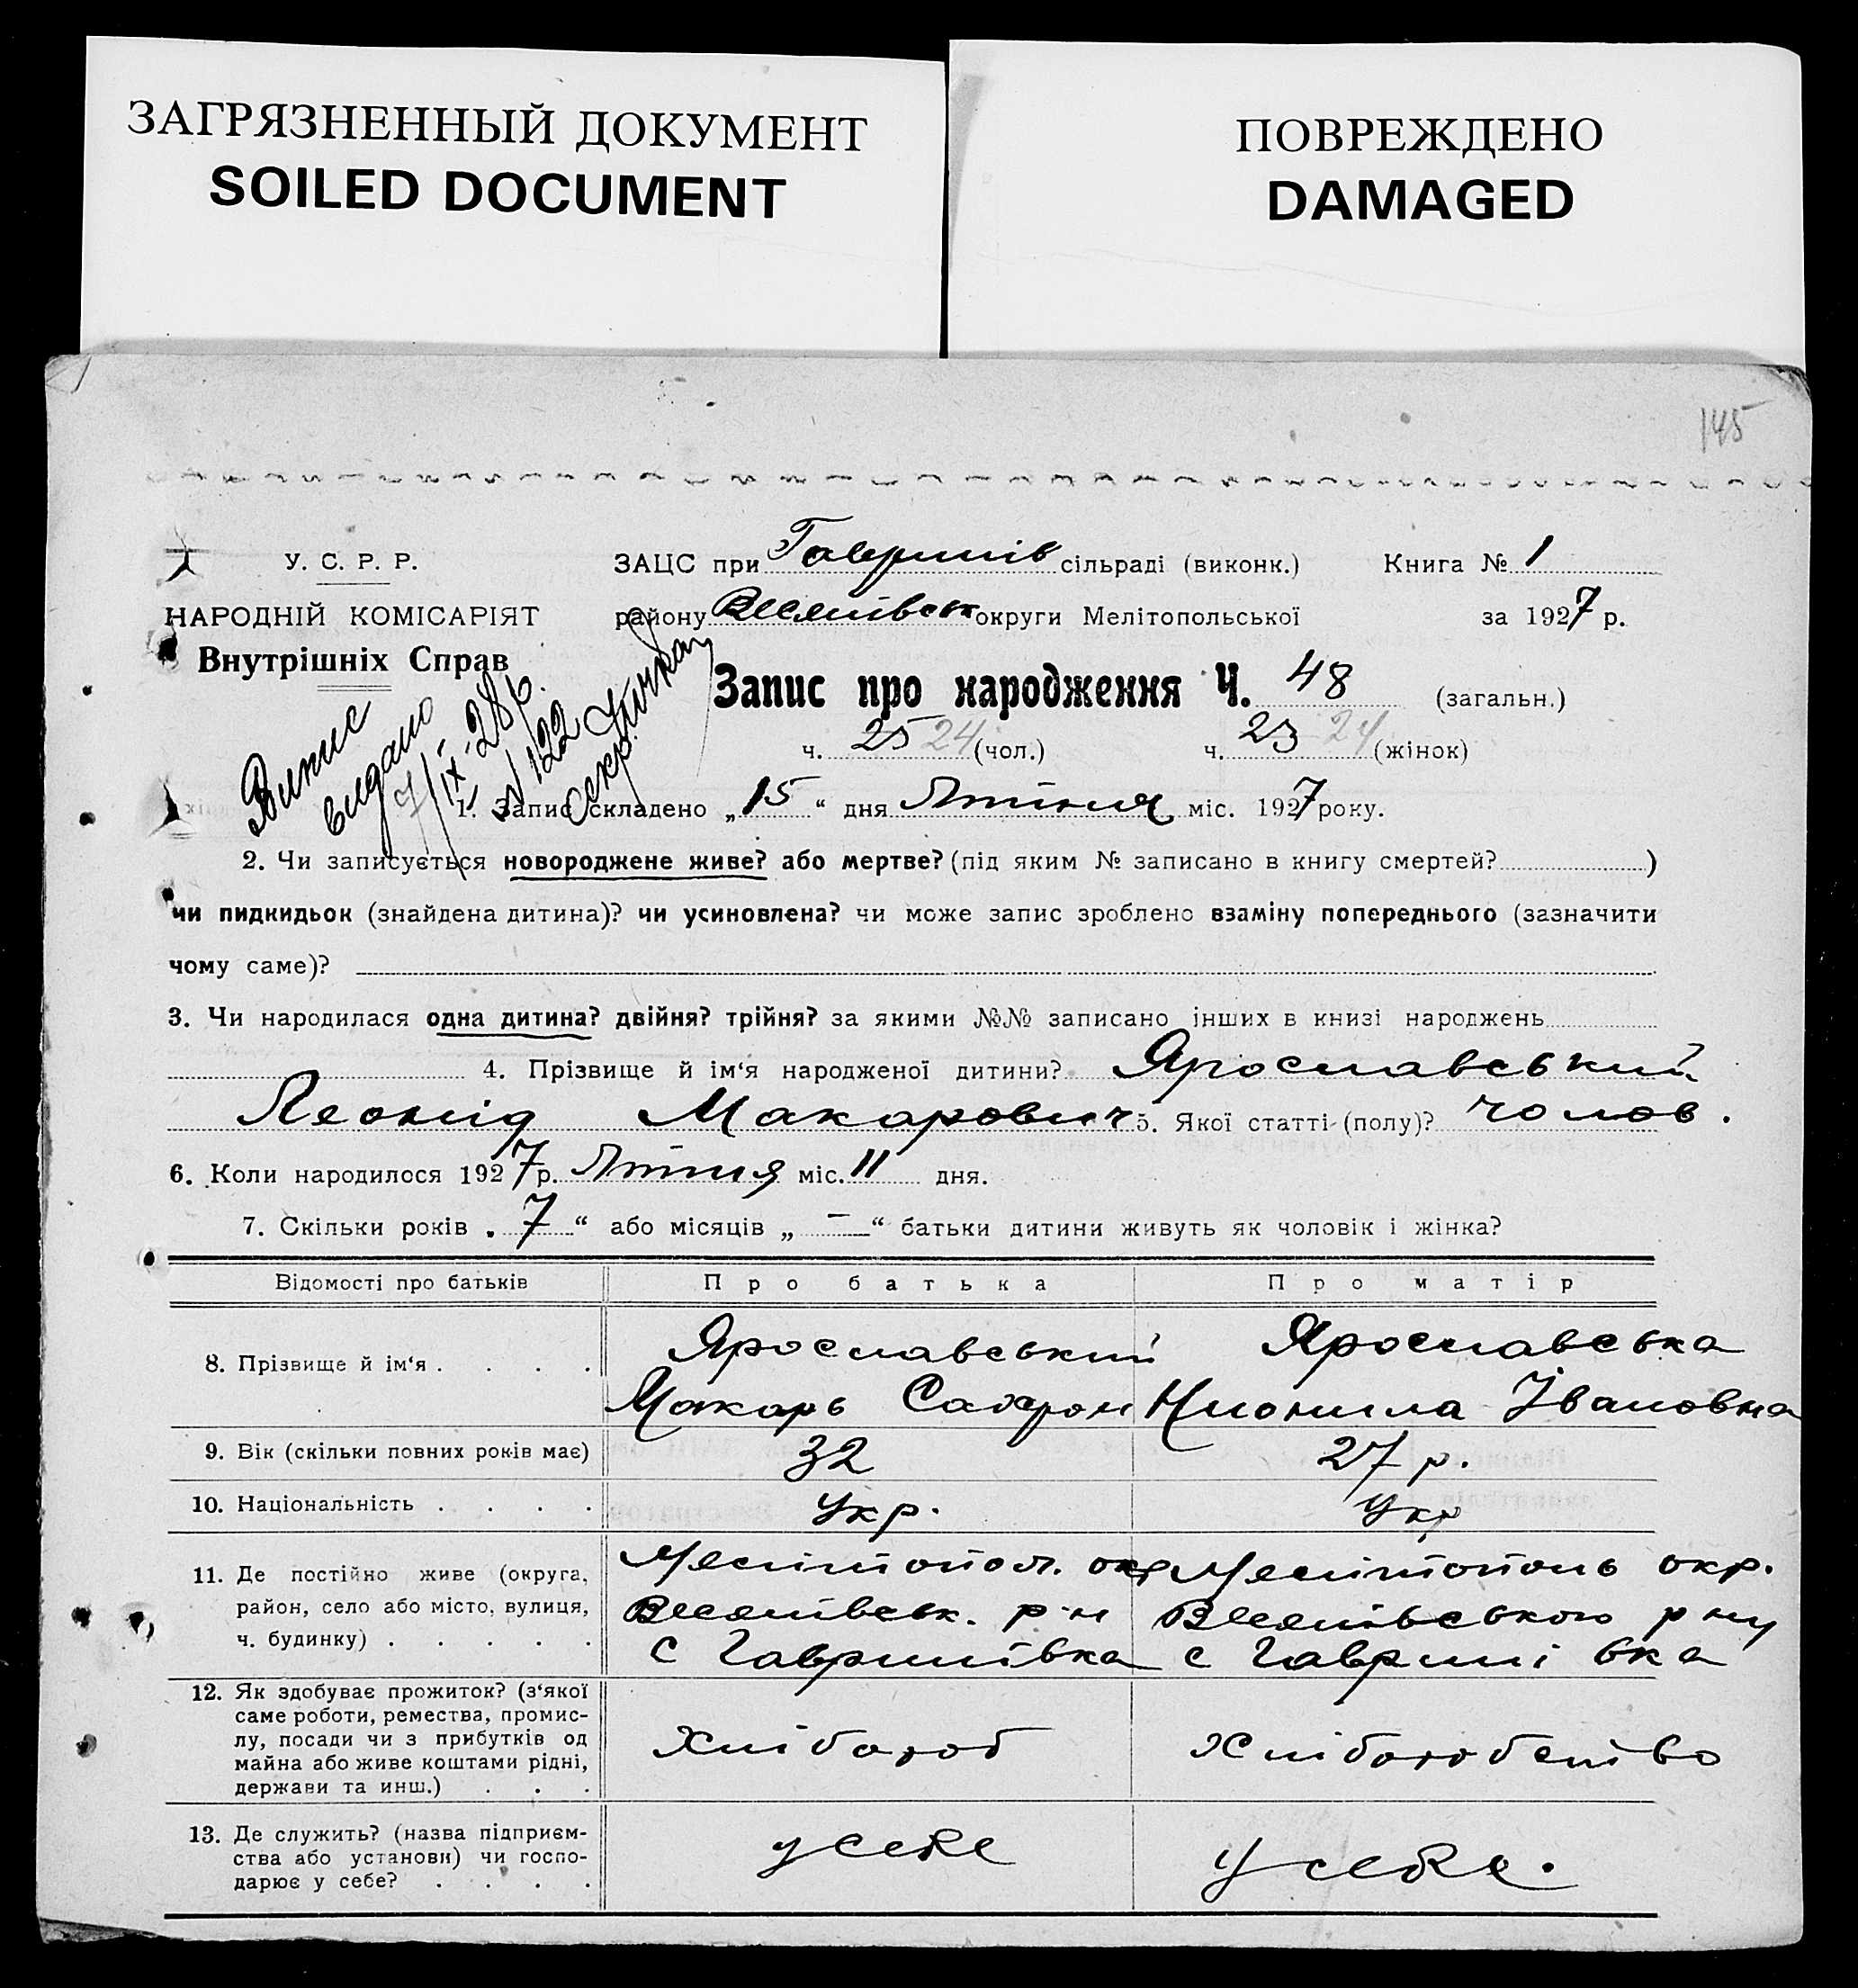 ЗАГРЯЗНЕННЫЙ ДОКУМЕНТ
SOILED DOCUMENT
ПОВРЕЖДЕНО
DAMAGED
145
У. С. Р. Р.
НАРОДНІЙ КОМІСАРІЯТ
Внутрішніх Справ
ЗАЦС при Гаврилів сільраді (виконк.) Книга № 1
району Веселівськ округи Мелітопольської за 1927 р.
Випис
видано
7/IX-28р.
N 122
Секр.
Запис про народження Ч. 48 (загальн.)
ч. 25 24 (чол.) ч. 23 24 (жінок)
1. Запис складено „15“ дня Лютня міс. 1927 року.
2. Чи записується новороджене живе? або мертве? (під яким № записано в книгу смертей? )
чи пидкидьок (знайдена дитина)? чи усиновлена? чи може запис зроблено взаміну попереднього (зазначити
чому саме)?
3. Чи народилася одна дитина? двійня? трійня? за якими №№ записано інших в книзі народжень
4. Прізвище й ім‘я народженої дитини? Ярославський
Леонід Макарович 5. Якої статті (полу)? чолов.
6. Коли народилося 1927 р. Лютня міс. 11 дня.
7. Скільки років „7“ або місяців „ – “ батьки дитини живуть як чоловік і жінка?
Відомості про батьків Про батька Про матір
8. Прізвище й ім‘я . . . .
Ярославський
Макарь Сафрон
Ярославська
Нионила Івановна
9. Вік (скільки повних років має) 32 27 р.
10. Національність . . . . Укр. Укр
11. Де постійно живе (округа,
район, село або місто, вулиця,
ч. будинку) . . . . .
Мелітопол. окр
Веселівськ. р-н
с Гаврилівка
Мелітополь окр.
Веселівського р ну
с Гаврилівка
12. Як здобуває прожиток? (з‘якої
саме роботи, ремества, промис-
лу, посади чи з прибутків од
майна або живе коштами рідні,
держави та инш.) . . .
Хлібороб
Хліборобство
13. Де служить? (назва підприєм-
ства або установи) чи госпо-
дарює у себе? . . . .
у себе
у себе.